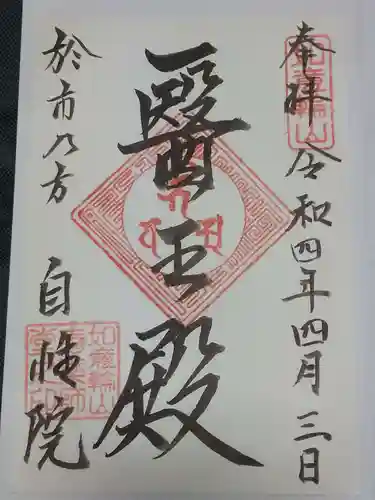 奉拝
令和四年四月三日
醫王殿
於市乃方
自性院
如意輪山